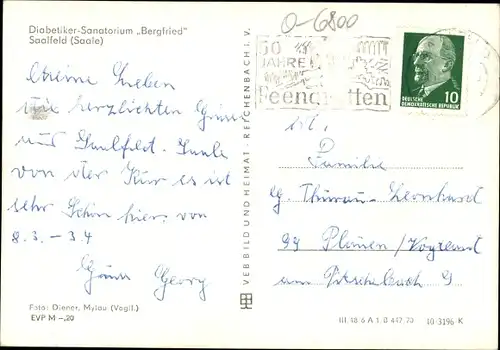 Diabetiker-Sanatorium „Bergfried"
Saalfeld (Saale)
0-6800
50
JAHRE
Feengrotten
DEUTSCHE
DEMOKRATISCHE REPUBLIK
10
Meine Lieben
die herzlichsten Grüße
aus Saalfeld-Saale
von der Kur es ist
sehr schön hier, von
8.3. – 3.4
Georg
Familie
Leonhard
99 Plauen/Vogtland
am 9
VEB BILD UND HEIMAT · REICHENBACH I. V.
Foto: Diener, Mylau (Vogtl.)
EVP M -,20
III 18 6 A 1. 0 447 70 10 3196 K